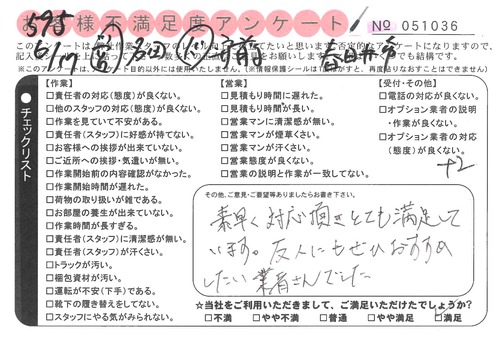 お客様不満足度アンケート
No 051036
5/17 午前
春日井市
【作業】
□責任者の対応(態度)が良くない。
□他のスタッフの対応(態度)が良くない。
□作業を見ていて不安がある。
□責任者(スタッフ)に好感が持てない。
□お客様への挨拶が出来ていない。
□ご近所への挨拶・気遣いが無い。
□作業開始前の内容確認がなかった。
□作業開始時間が遅れた。
□荷物の取り扱いが雑である。
□お部屋の養生が出来ていない。
□作業時間が長すぎる。
□責任者(スタッフ)に清潔感が無い。
□責任者(スタッフ)が汗くさい。
□トラックが汚い。
□梱包資材が汚い。
□運転が不安(下手)である。
□靴下の履き替えをしてない。
□スタッフにやる気がみられない。
【営業】
□見積もり時間に遅れた。
□見積もり時間が長い。
□営業マンに清潔感が無い。
□営業マンが煙草くさい。
□営業マンが汗くさい。
□営業態度が良くない。
□営業の説明と作業が一致してない。
【受付・その他】
□電話の対応が良くない。
□オプション業者の説明
・作業が良くない。
□オプション業者の対応
(態度)が良くない。
+2
チェックリスト
その他、ご意見・ご要望等ありましたらお書き下さい。
素早く対応頂きとても満足して
います。友人にもぜひおすすめ
したい業者さんでした
☆当社をご利用いただきまして、ご満足いただけたでしょうか?
□不満 □やや不満 □普通 □やや満足 □満足